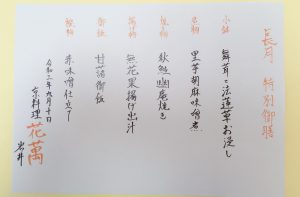 長月 特別御膳
小鉢 舞茸と法蓮草お浸し
煮物 里芋胡麻味噌煮
焼物 秋鮭幽庵焼き
揚げ物 無花果揚げ出汁
御飯 甘藷御飯
赤味噌仕立て
令和三年九月十日
京料理 花萬
岩井